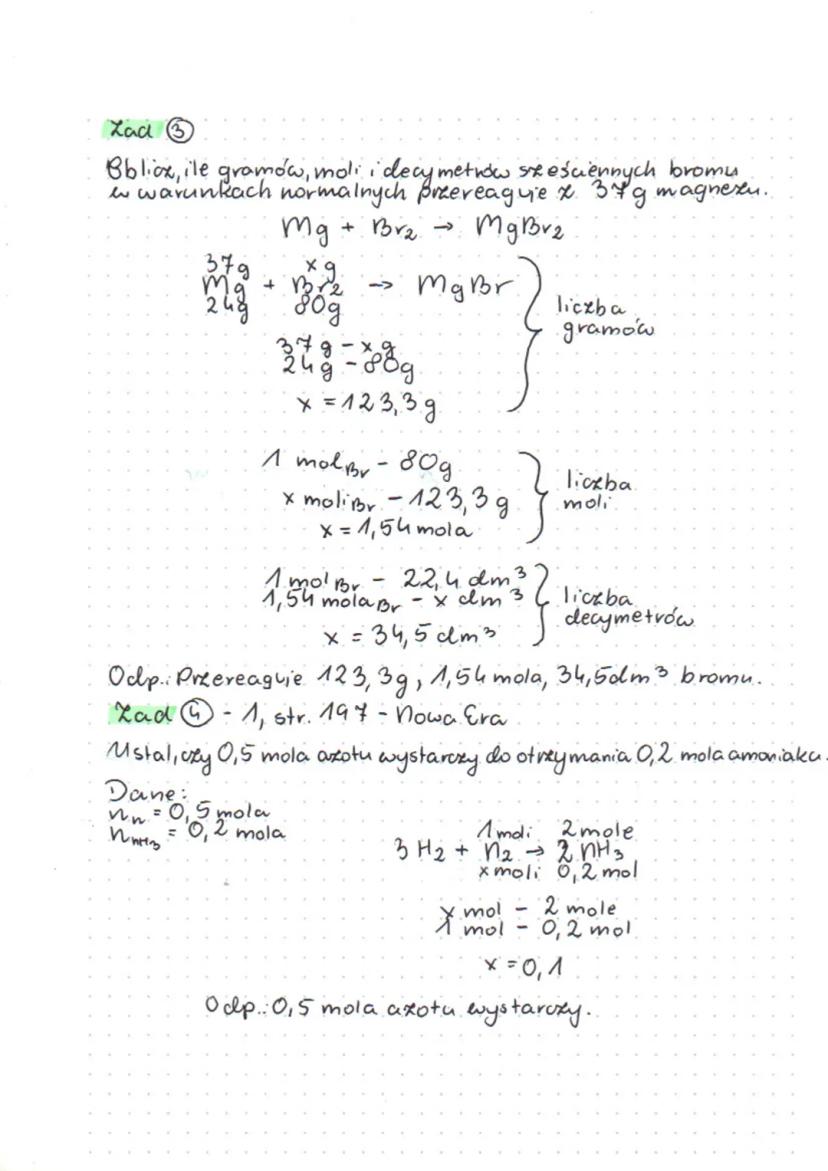 Zad ③
Oblicz, ile gramów, moli i decymetrów sześciennych bromu
w warunkach normalnych przereaguje z 37g magnezu.
Mg + Br₂ → MgBr₂
37g xg
Mg + Br₂ → MgBr
24g 80g
liczba
gramów
37g - xg
24g - 80g
x = 123,3g
1 mol Br - 80g
x moli Br - 123,3g
x = 1,54 mola
liczba
moli
1 mol Br - 22,4 dm³
1,54 mola Br - x dm³
x = 34,5 dm³
liczba
decymetrów
Odp.: Przereaguje 123,3g, 1,54 mola, 34,5dm³ bromu.
Zad ④ - 1, str. 197 - Nowa Era
Ustal, czy 0,5 mola azotu wystarczy do otrzymania 0,2 mola amoniaku.
Dane:
nN = 0,5 mola
nNH₃ = 0,2 mola
1 mol: 2 mole
3 H₂ + N₂ → 2 NH₃
x moli 0,2 mol
x mol - 2 mole
1 mol - 0,2 mol
x = 0,1
Odp.: 0,5 mola azotu wystarczy.